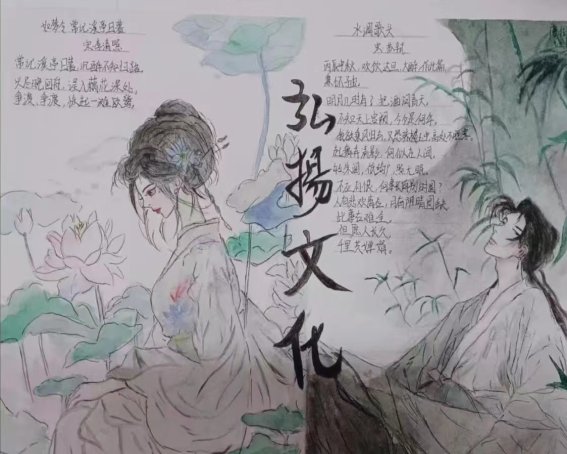 如梦令 常记溪亭日暮
宋 李清照
常记溪亭日暮，沉醉不知归路。
兴尽晚回舟，误入藕花深处。
争渡，争渡，惊起一滩鸥鹭。
弘揚文化
水调歌头
宋 苏轼
丙辰中秋，欢饮达旦，大醉，作此篇，
兼怀子由
明月几时有？把酒问青天，
不知天上宫阙，今夕是何年。
我欲乘风归去，又恐琼楼玉宇，高处不胜寒。
起舞弄清影，何似在人间。
转朱阁，低绮户，照无眠。
不应有恨，何事长向别时圆？
人有悲欢离合，月有阴晴圆缺
此事古难全。
但愿人长久，
千里共婵娟。